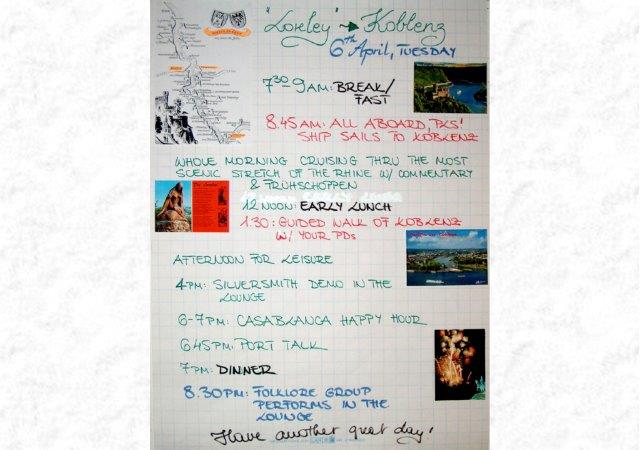 "Loreley" → Koblenz
6th April, TUESDAY
7 30 - 9 AM: BREAK/
FAST
8.45 AM: ALL ABOARD, PLS!
SHIP SAILS TO KOBLENZ
WHOLE MORNING CRUISING THRU THE MOST
SCENIC STRETCH OF THE RHINE W/ COMMENTARY
& FRÜHSCHOPPEN
12 NOON: EARLY LUNCH
1.30: GUIDED WALK OF KOBLENZ
W/ YOUR PDs
AFTERNOON FOR LEISURE
4 PM: SILVERSMITH DEMO IN THE
LOUNGE
6-7 PM: CASABLANCA HAPPY HOUR
6 45 PM: PORT TALK
7 PM: DINNER
8.30 PM: FOLKLORE GROUP
PERFORMS IN THE
LOUNGE
Have another great day!